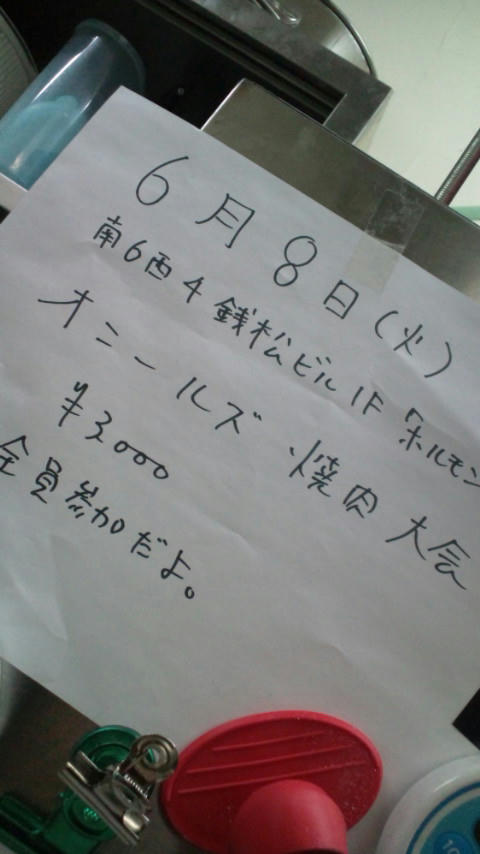 6月8日(火)
南6西4 銭松ビル1F ホルモン
オニールズ 焼肉大会
¥3000
全員参加だよ。
10